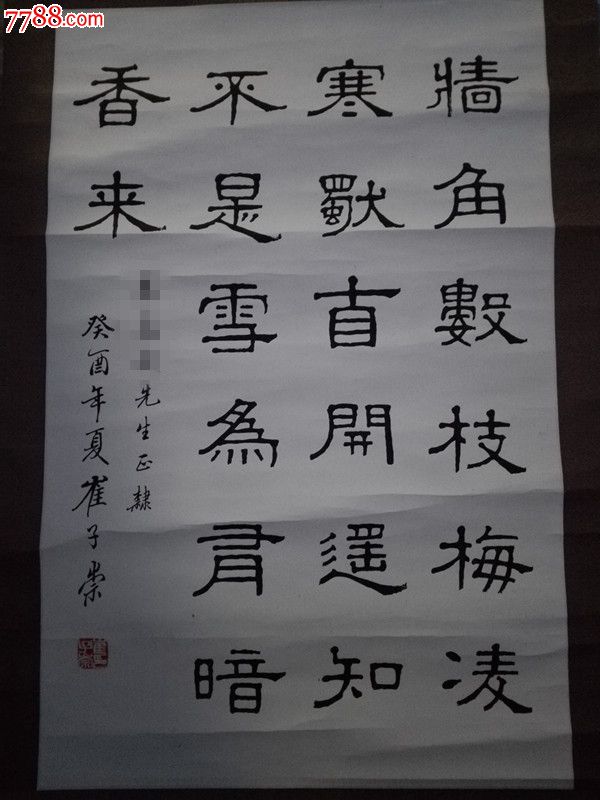 7788.com
牆角數枝梅凌
寒獨自開遥知
不是雪為有暗
香来
先生正隸
癸酉年夏崔子崇